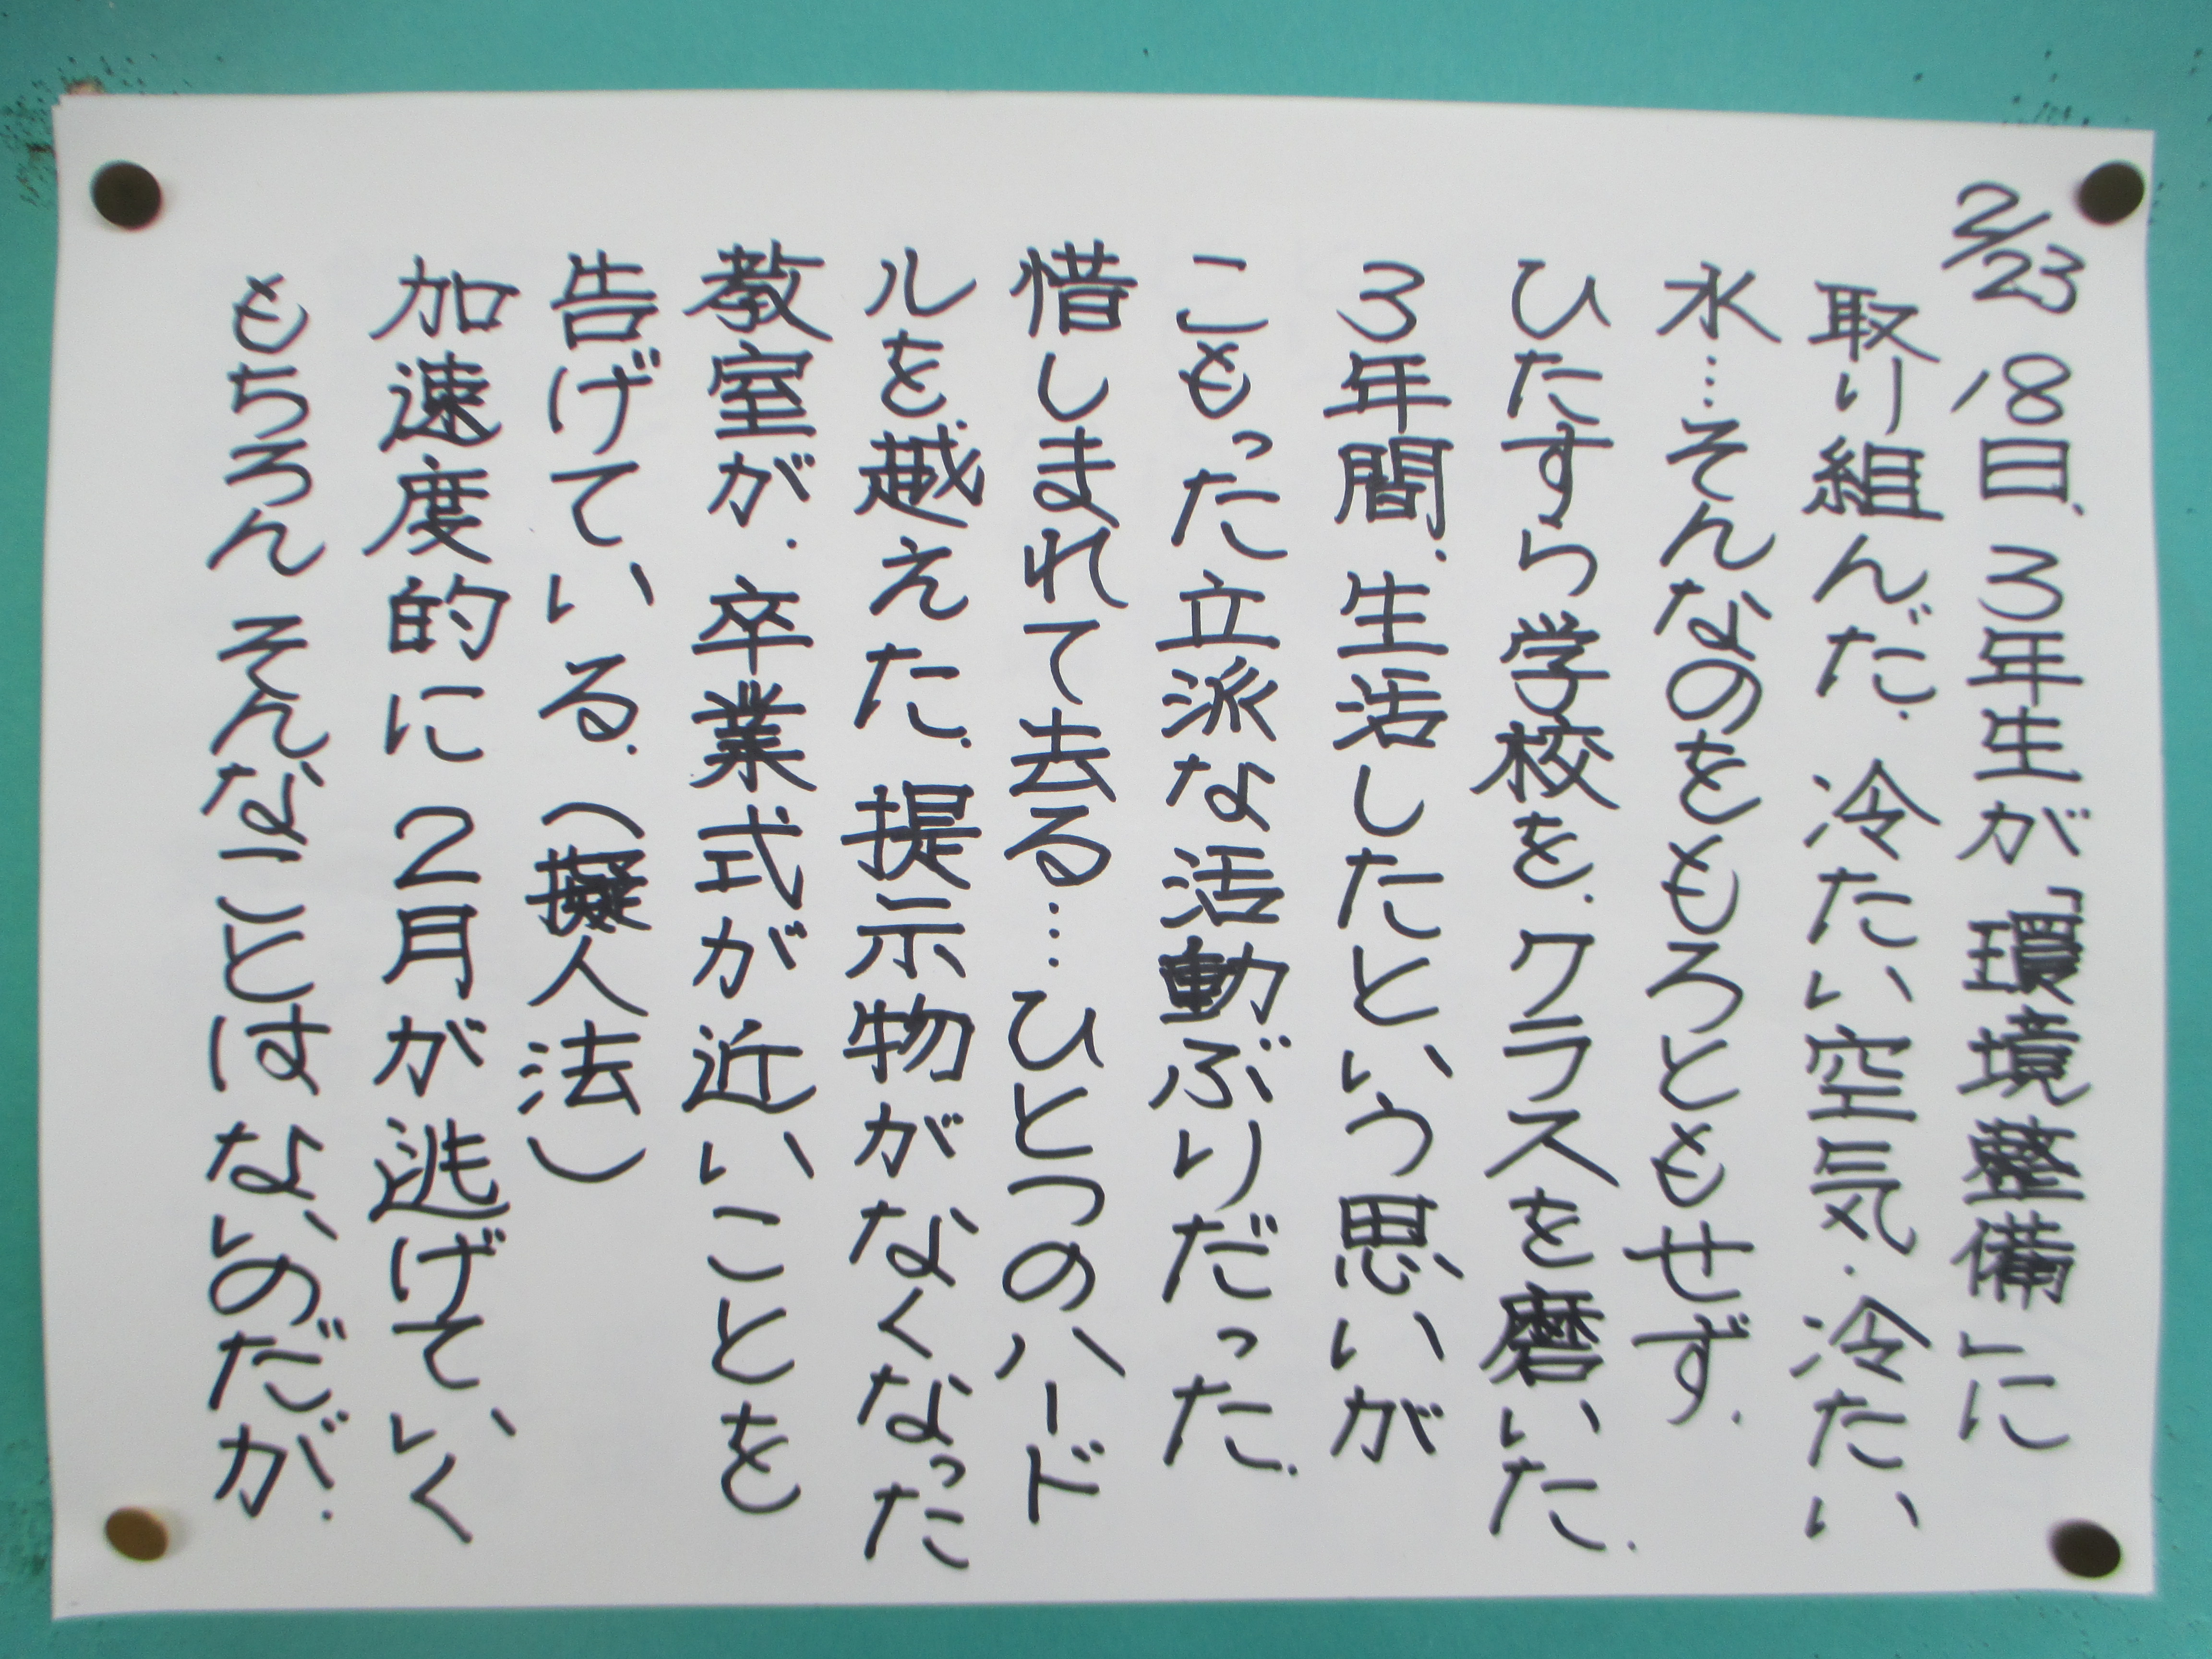 2/23 18日、3年生が「環境整備」に
取り組んだ。冷たい空気、冷たい
水…そんなのをもろともせず、
ひたすら学校を、クラスを磨いた。
3年間、生活したという思いが
こもった立派な活動ぶりだった。
惜しまれて去る……ひとつのハード
ルを越えた。提示物がなくなった
教室が、卒業式が近いことを
告げている。(擬人法)
加速度的に2月が逃げていく
もちろんそんなことはないのだが。